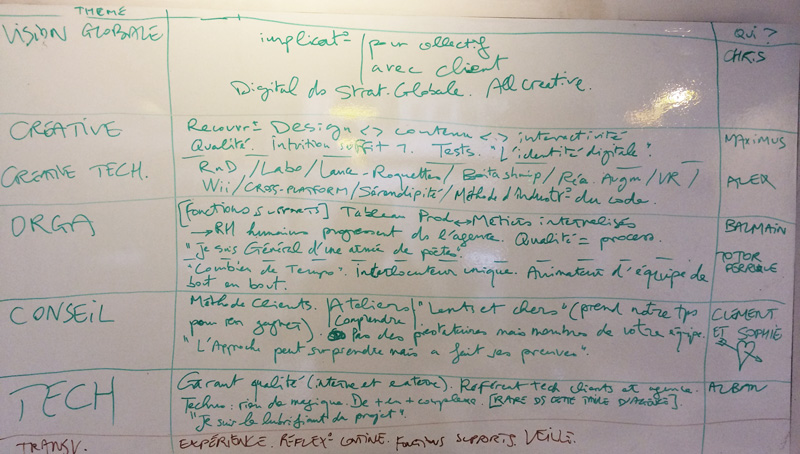 THEME
QUI ?
VISION GLOBALE
implicat° pour collectif
avec client
CHRIS
Digital ds Strat. Globale. All creative.
CRÉATIVE
Design <> contenu <-> interactivité
MAXIMUS
Qualité. Intuition Tests. "L'identité digitale".
CREATIVE TECH.
RnD / Labo / Lance-Roquettes / / Réa. Augm / VR /
ALEX
Wii / CROSS-PLATFORM / Sérendipité / Méthode d'Industr° du code
ORGA
[Fonctions supports] Tableau Prod <-> Métiers internalisés
BALMAIN
→ RH humains progressent ds l'agence. Qualité = process.
"Je suis Général d'une armée de poètes."
TOTOR
"Combien de Temps". Interlocuteur unique. Animateur d'équipe de
bout en bout.
CONSEIL
Méthode Clients. Ateliers "Lents et chers" (prend notre tps
CLÉMENT
pour en gagner). Comprendre Pas des prestataires mais membres de votre équipe.
ET SOPHIE
"L'Approche peut surprendre mais a fait ses preuves".
TECH
Garant qualité (interne et externe). Référent tech clients et agence.
ALBAN
Techno : rien de magique. De + en + complexe. [RARE DS CETTE TAILLE D'AGENCE].
"Je suis le lubrifiant du projet".
TRANSV.
EXPÉRIENCE. RÉFLEX° CONTINE. Fonctions SUPPORTS. VEILLE.